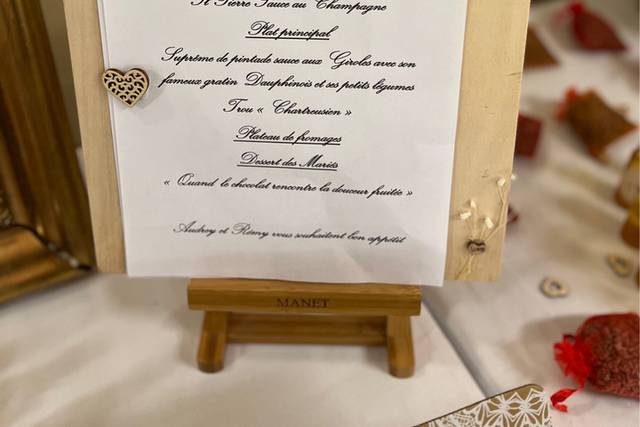 St Pierre Sauce au Champagne
Plat principal
Suprême de pintade sauce aux Giroles avec son
fameux gratin Dauphinois et ses petits légumes
Trou « Chartreusien »
Plateau de fromages
Dessert des Mariés
« Quand le chocolat rencontre la douceur fruitée »
Audrey et Rémy vous souhaitent bon appétit
MANET